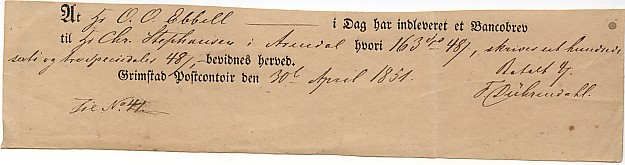 At Hr O. O. Ebbell i Dag har indleveret et Bancobrev
til Hr Chr. Stephansen i Arendal hvori 163 Spd 48 ß, skriver et hundrede
sexti og tre speciedaler 48 ß, bevidnes herved.
Grimstad Postcontoir den 30te April 1851.
Betalt 4 ß.
Til No 41.